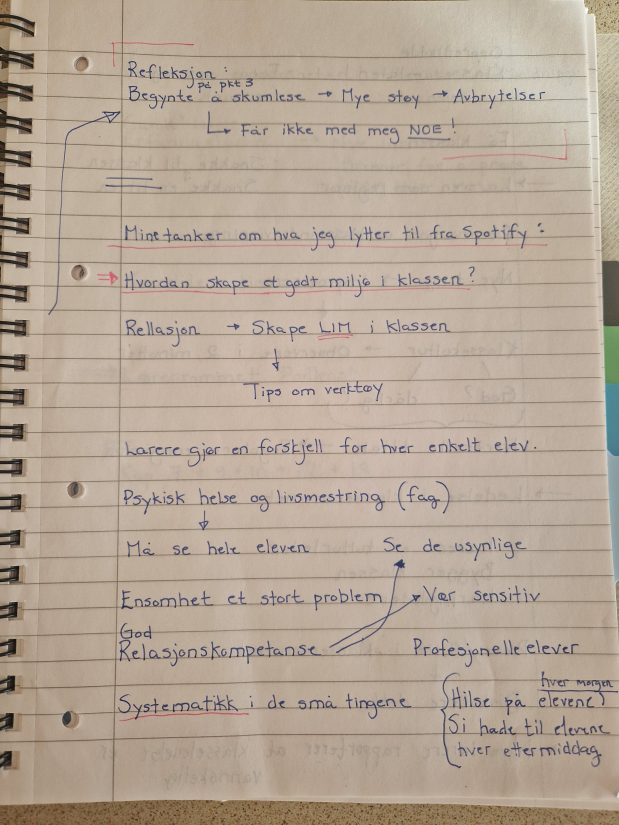 Refleksjon:
på pkt 3
Begynte å skumlese → Mye støy → Avbrytelser
↳ Får ikke med meg NOE!
Mine tanker om hva jeg lytter til fra Spotify:
⇒ Hvordan skape et godt miljø i klassen?
Rellasjon → Skape LIM i klassen
↓
Tips om verktøy
Lærere gjør en forskjell for hver enkelt elev.
Psykisk helse og livsmestring (fag)
↓
Må se hele eleven Se de usynlige
Ensomhet et stort problem Vær sensitiv
God
Relasjonskompetanse Profesjonelle elever
hver morgen
Systematikk i de små tingene { Hilse på elevene
Si hade til elevene
hver ettermiddag